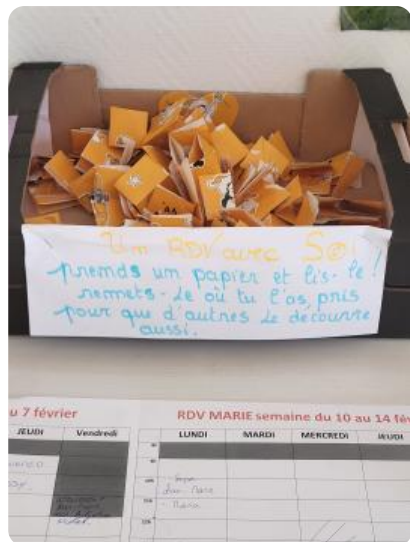 Un RDV avec Soi
prends un papier et lis-le !
remets-le où tu l'as pris
pour que d'autres le découvre
aussi.
u 7 février
RDV MARIE semaine du 10 au 14 fév
JEUDI Vendredi
LUNDI MARDI MERCREDI JEUDI